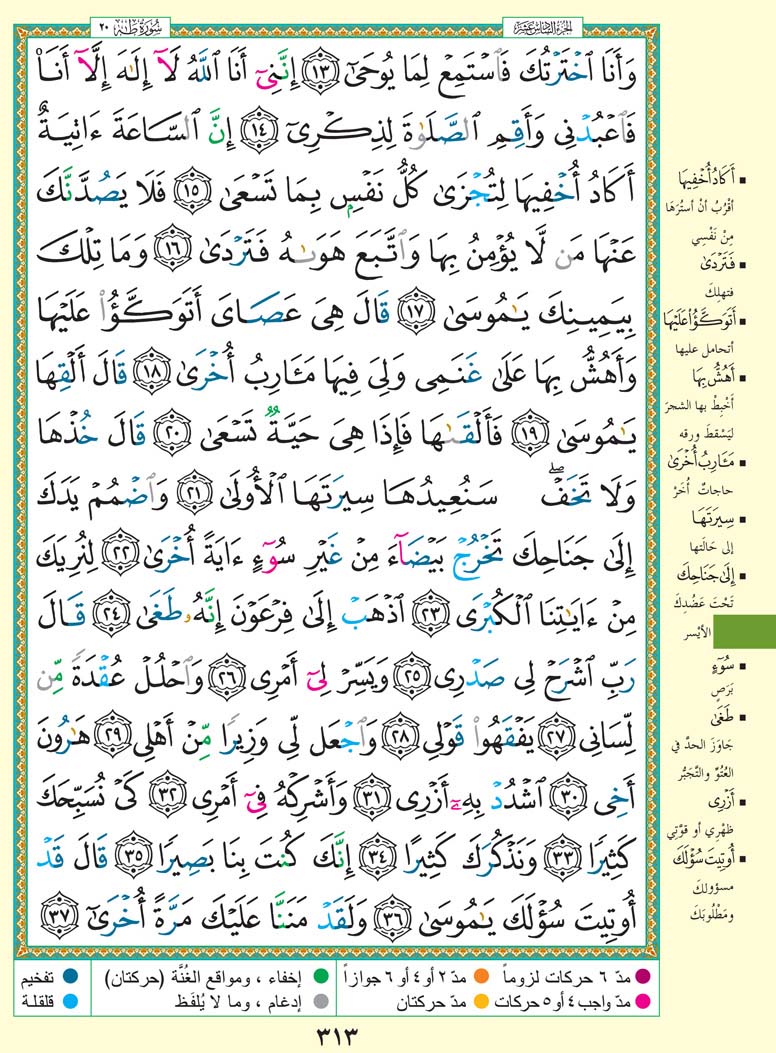 الجزء السادس عشر
سُورَةُ طه ٢٠
وَأَنَا ٱخْتَرْتُكَ فَٱسْتَمِعْ لِمَا يُوحَىٰٓ ١٣ إِنَّنِىٓ أَنَا ٱللَّهُ لَآ إِلَٰهَ إِلَّآ أَنَا۠
فَٱعْبُدْنِى وَأَقِمِ ٱلصَّلَوٰةَ لِذِكْرِىٓ ١٤ إِنَّ ٱلسَّاعَةَ ءَاتِيَةٌ
أَكَادُ أُخْفِيهَا لِتُجْزَىٰ كُلُّ نَفْسٍۭ بِمَا تَسْعَىٰ ١٥ فَلَا يَصُدَّنَّكَ
عَنْهَا مَن لَّا يُؤْمِنُ بِهَا وَٱتَّبَعَ هَوَىٰهُ فَتَرْدَىٰ ١٦ وَمَا تِلْكَ
بِيَمِينِكَ يَٰمُوسَىٰ ١٧ قَالَ هِىَ عَصَاىَ أَتَوَكَّؤُا۟ عَلَيْهَا
وَأَهُشُّ بِهَا عَلَىٰ غَنَمِى وَلِىَ فِيهَا مَـَٔارِبُ أُخْرَىٰ ١٨ قَالَ أَلْقِهَا
يَٰمُوسَىٰ ١٩ فَأَلْقَىٰهَا فَإِذَا هِىَ حَيَّةٌ تَسْعَىٰ ٢٠ قَالَ خُذْهَا
وَلَا تَخَفْ ۖ سَنُعِيدُهَا سِيرَتَهَا ٱلْأُولَىٰ ٢١ وَٱضْمُمْ يَدَكَ
إِلَىٰ جَنَاحِكَ تَخْرُجْ بَيْضَآءَ مِنْ غَيْرِ سُوٓءٍ ءَايَةً أُخْرَىٰ ٢٢ لِنُرِيَكَ
مِنْ ءَايَٰتِنَا ٱلْكُبْرَى ٢٣ ٱذْهَبْ إِلَىٰ فِرْعَوْنَ إِنَّهُۥ طَغَىٰ ٢٤ قَالَ
رَبِّ ٱشْرَحْ لِى صَدْرِى ٢٥ وَيَسِّرْ لِىٓ أَمْرِى ٢٦ وَٱحْلُلْ عُقْدَةً مِّن
لِّسَانِى ٢٧ يَفْقَهُوا۟ قَوْلِى ٢٨ وَٱجْعَل لِّى وَزِيرًا مِّنْ أَهْلِى ٢٩ هَٰرُونَ
أَخِى ٣٠ ٱشْدُدْ بِهِۦٓ أَزْرِى ٣١ وَأَشْرِكْهُ فِىٓ أَمْرِى ٣٢ كَىْ نُسَبِّحَكَ
كَثِيرًا ٣٣ وَنَذْكُرَكَ كَثِيرًا ٣٤ إِنَّكَ كُنتَ بِنَا بَصِيرًا ٣٥ قَالَ قَدْ
أُوتِيتَ سُؤْلَكَ يَٰمُوسَىٰ ٣٦ وَلَقَدْ مَنَنَّا عَلَيْكَ مَرَّةً أُخْرَىٰٓ ٣٧
أَكَادُ أُخْفِيهَا
أقْرُبُ أنْ أستُرَهَا
مِنْ نَفْسِي
فَتَرْدَىٰ
فتهلِكَ
أَتَوَكَّؤُا۟ عَلَيْهَا
أتحامل عليها
أَهُشُّ بِهَا
أخْبِطُ بها الشجرَ
ليَسْقطَ ورقه
مَـَٔارِبُ أُخْرَىٰ
حاجاتٌ أُخَرُ
سِيرَتَهَا
إلى حَالَتها
إِلَىٰ جَنَاحِكَ
تَحْتَ عَضُدِكَ
الأيْسر
سُوٓءٍ
بَرَصٍ
طَغَىٰ
جَاوَزَ الحدَّ في
العُتُوِّ والتَّجَبُّر
أَزْرِى
ظهْرِي أو قوَّتِي
أُوتِيتَ سُؤْلَكَ
مسؤولكَ
ومَطْلُوبَكَ
مدّ ٦ حركات لزوماً
مدّ ٢ أو ٤ أو ٦ جوازاً
إخفاء ، ومواقع الغُنَّة (حركتان)
تفخيم
مدّ واجب ٤ أو ٥ حركات
مدّ حركتان
إدغام ، وما لا يُلفَظ
قلقلة
٣١٣